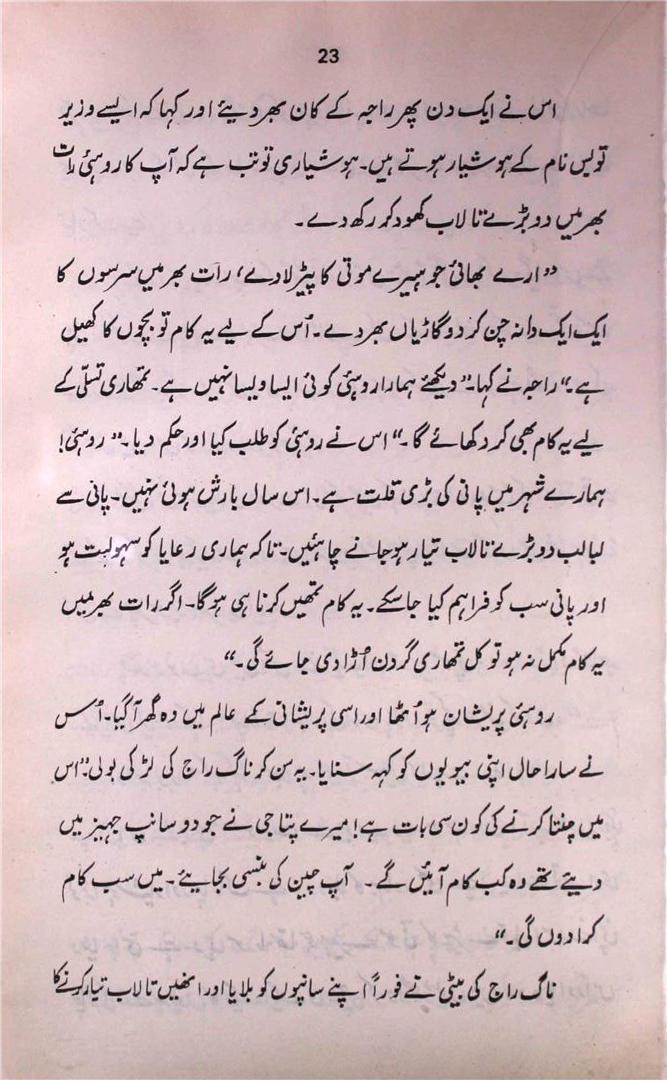 23
اس نے ایک دن پھر راجہ کے کان بھر دیئے اور کہا کہ ایسے وزیر
تو بس نام کے ہوشیار ہوتے ہیں۔ ہوشیاری تو تب ہے کہ آپ کا روہنی رات
بھر میں دو بڑے تالاب کھود کر رکھ دے۔
”ارے بھائی جو ہیرے موتی کا پیڑ لا دے، رات بھر میں سرسوں کا
ایک ایک دانہ چن کر دو گاڑیاں بھر دے۔ اُس کے لیے یہ کام تو بچّوں کا کھیل
ہے۔“ راجہ نے کہا۔ ”دیکھئے ہمارا روہنی کوئی ایسا ویسا نہیں ہے۔ تمھاری تسلّی کے
لیے یہ کام بھی کر دکھائے گا۔“ اس نے روہنی کو طلب کیا اور حکم دیا۔ ”روہنی!
ہمارے شہر میں پانی کی بڑی قلت ہے۔ اس سال بارش ہوئی نہیں۔ پانی سے
لبالب دو بڑے تالاب تیار ہو جانے چاہئیں۔ تاکہ ہماری رعایا کو سہولیت ہو
اور پانی سب کو فراہم کیا جا سکے۔ یہ کام تمھیں کرنا ہی ہوگا۔ اگر رات بھر میں
یہ کام مکمل نہ ہو تو کل تمھاری گردن اُڑا دی جائے گی۔“
روہنی پریشان ہو اُٹھا اور اسی پریشانی کے عالم میں وہ گھر آگیا۔ اُس
نے سارا حال اپنی بیویوں کو کہہ سنایا۔ یہ سن کر ناگ راج کی لڑکی بولی: ”اس
میں چنتا کرنے کی کون سی بات ہے! میرے پتا جی نے جو دو سانپ جہیز میں
دیئے تھے وہ کب کام آئیں گے۔ آپ چین کی بنسی بجایئے۔ میں سب کام
کرا دوں گی۔“
ناگ راج کی بیٹی نے فوراً اپنے سانپوں کو بلایا اور انھیں تالاب تیار کرنے کا